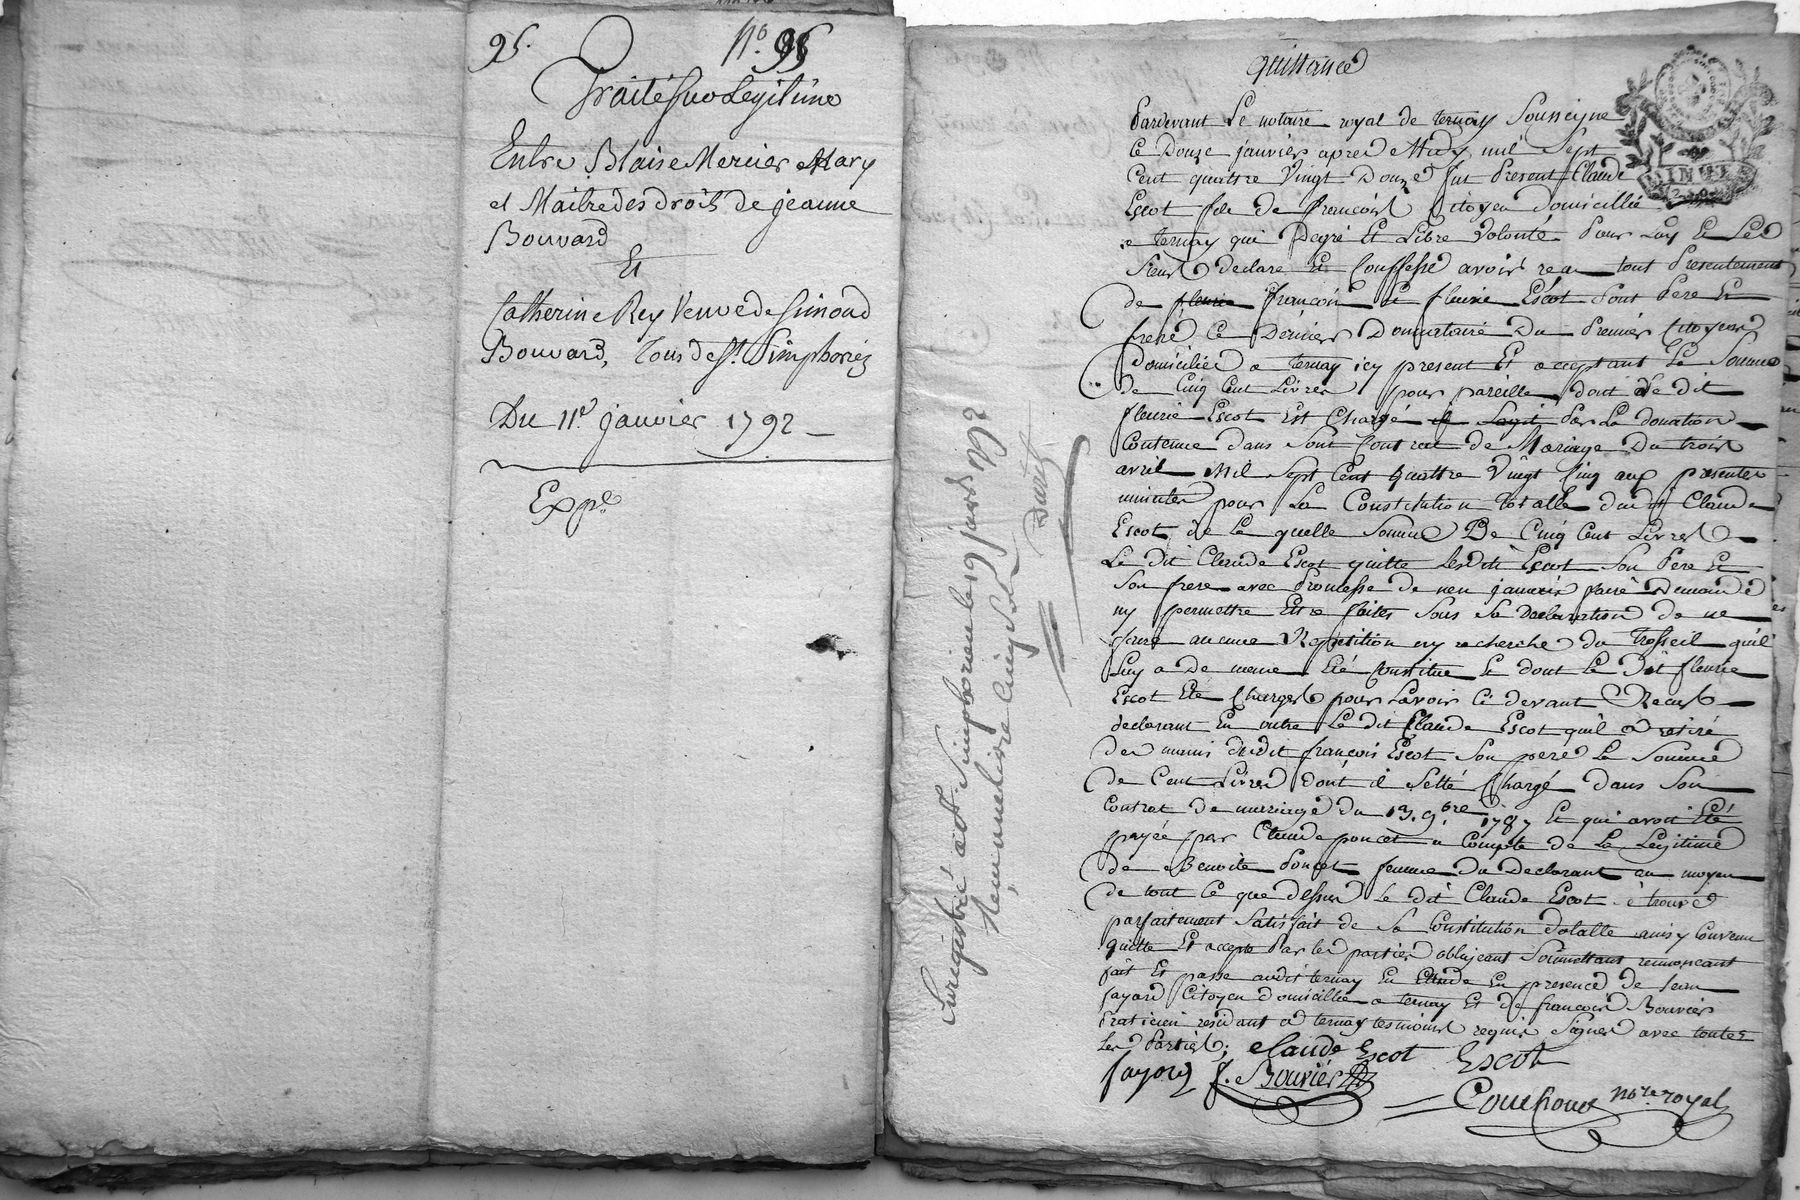 95. N.o 95
Traité sur Legitime
Entre Blaise Mercier Mary
et Maitre des droits de jeanne
Bouvard
Et
Catherine Rey Veuve de Simond
Bouvard, Tous de St. Simphorien
Du 11e janvier 1792
Expé
quittance
Pardevant Le notaire royal de ternay Soussigné
Ce Douze janvier apres Midy mil Sept
Cent quattre Vingt Douze fut Present Claude
Escot fils de françois Citoyen domicillié
a ternay qui De gré Et Libre Volonté Pour Luy Et Les
Siens declare Et Confesse avoir recu tout Presentement
de fleurie françois et fleurie Escot Sont Pere Et
frere, Ce Dernier Donnattaire Du Premier Citoyens
domiciliés a ternay icy present Et acceptant La Somme
de Cinq Cent Livres pour pareille dont Le dit
fleurie Escot Est Chargé Par La donation
Contenue dans Sont Contrat de Mariage Du trois
avril Mil Sept Cent quattre Vingt Cinq aux presentes
minutes pour La Constitution totalle dudit Claude
Escot, de La quelle Somme De Cinq Cent Livres
Le Dit Claude Escot quitte Lesdits Escot Son Pere Et
Son frere avec Promesse de nen jamais faire Demande
ny permettre Etre faites Sous Sa Declaration de ne
faire aucune Repetition ny recherche du Trosseil quil
Luy a De meme Eté Constitué Et dont Le Dit fleurie
Escot Eté Chargé pour Lavoir Ci devant Recus
declarant En outre Le dit Claude Escot quil a retiré
des mains dudit françois Escot Son pere La Somme
de Cent Livres dont il Setté Chargé dans Son
Contrat de mariage du 13. 9.bre 1787 Et qui avoit Eté
payée par Claude poncet a Compte de La Legitime
de Benoite Poncet femme du Declarant au moyen
de tout Ce que dessus Le dit Claude Escot Se trouve
parfaitement Satisfait de Sa Constitution dotalle ainsy Convenu
quitté Et accepté Par les parties obligeant Soumettant renoncant
fait Et passé audit ternay En Etude En presence de jean
fayard Citoyen domicillié a ternay Et de francois Bouvier
Praticien residant a ternay tesmoins requis Signés avec toutes
Les Parties;
claude Escot Escot
fayard f. Bouvier
Couchoud note royal
Enregistré a St. Simphorien le 19 janvr. 1792